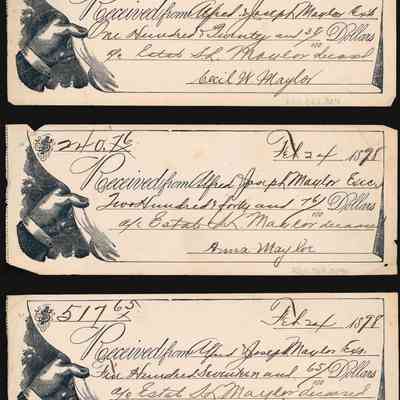 Received from Alfred & Joseph Maylor Exts
One Hundred & Twenty and 38/ Dollars
a/c Estat S L Maylor deceased 100
Cecil W. Maylor
$ 240.76 Feb 24 1898
Received from Alfred & Joseph Maylor Exec.
Two Hundred & forty and 76/ Dollars
a/c Estat S L Maylor deceased 100
Anna Maylor
$ 517 65 Feb 24 1898
Received from Alfred & Joseph Maylor Exs.
Five Hundred Seventeen and 65/ Dollars
a/c Estat S L Maylor deceased 100